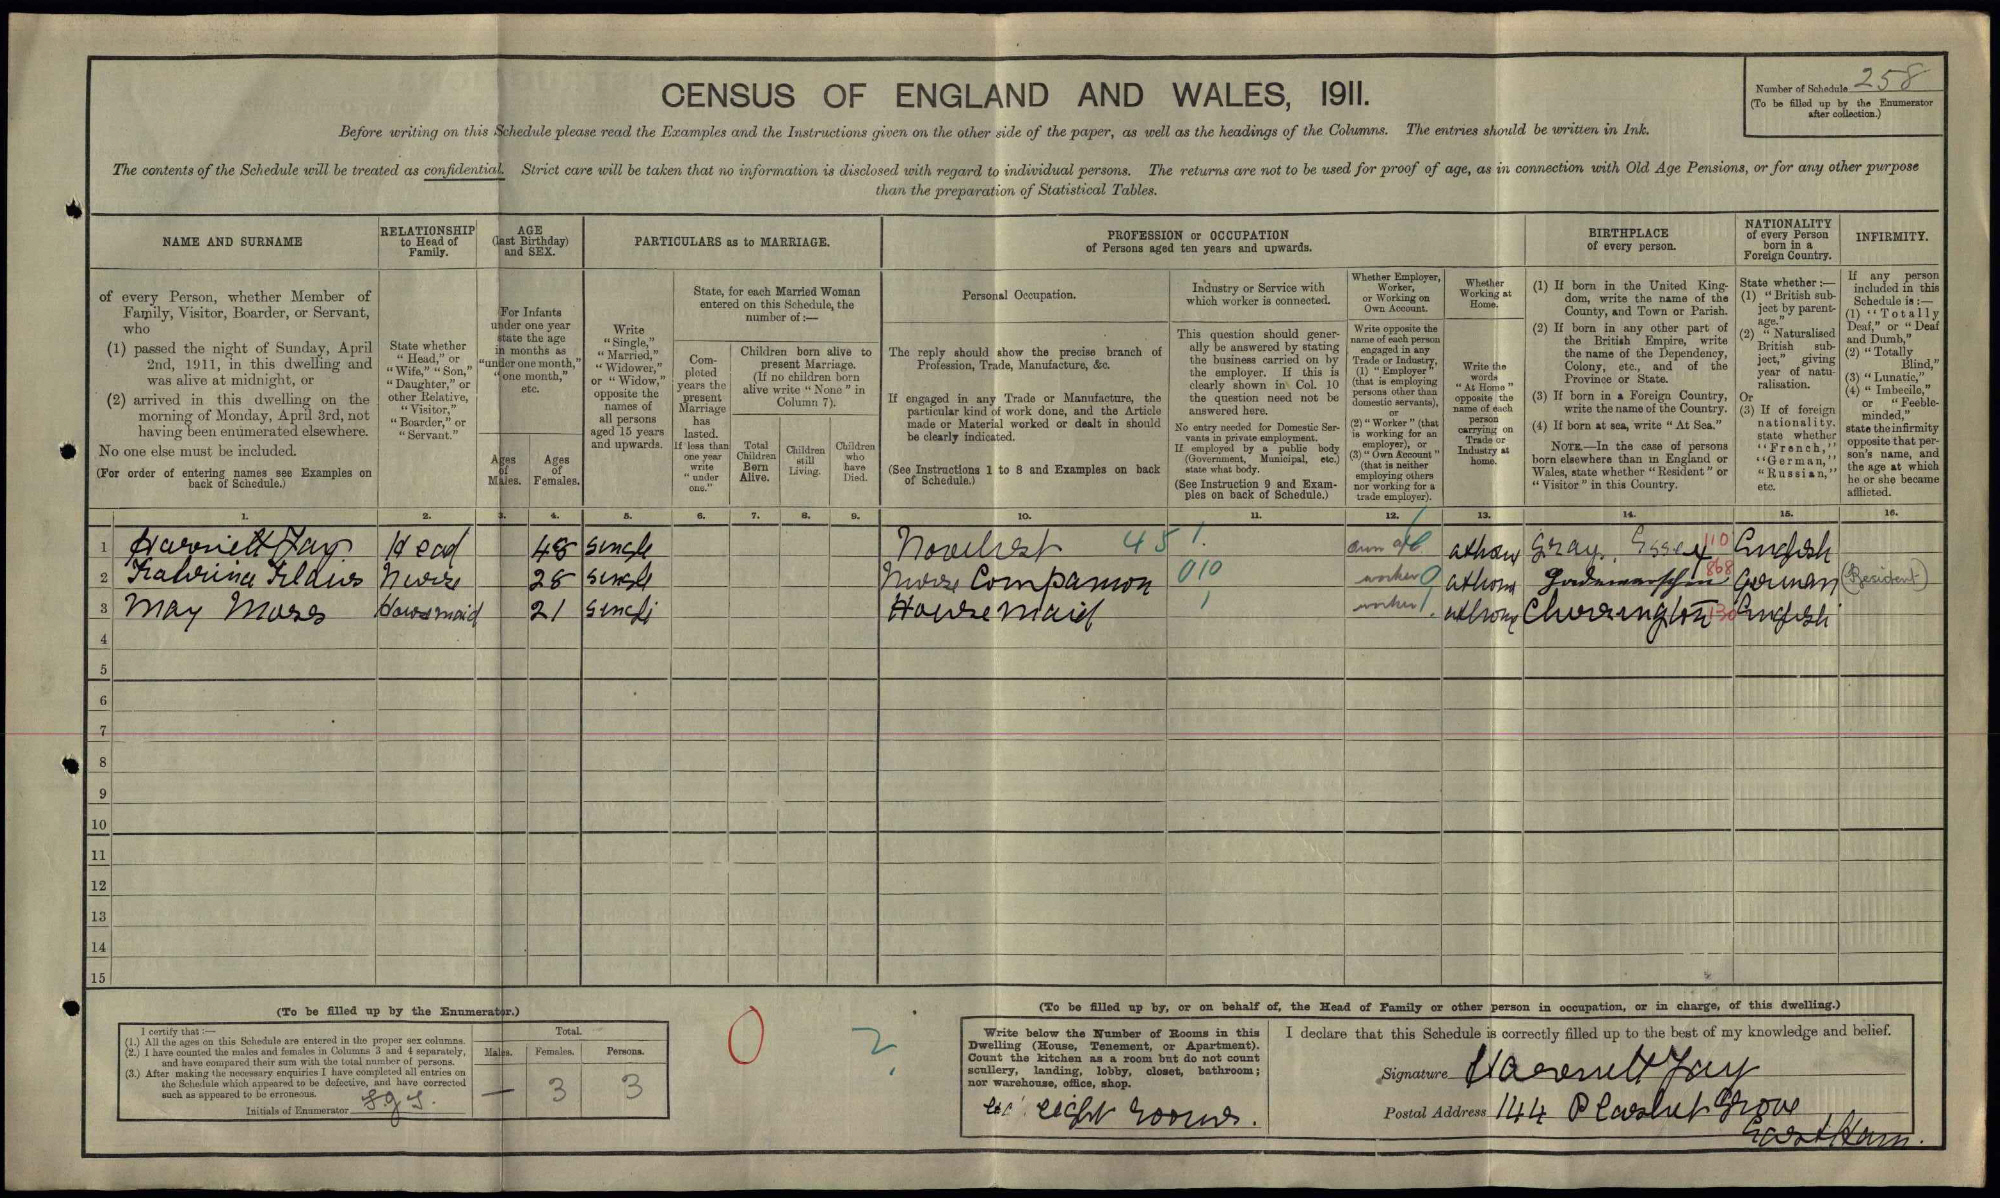 CENSUS OF ENGLAND AND WALES, 1911.
Number of Schedule 258
(To be filled up by the Enumerator
after collection.)
Before writing on this Schedule please read the Examples and the Instructions given on the other side of the paper, as well as the headings of the Columns. The entries should be written in Ink.
The contents of the Schedule will be treated as confidential. Strict care will be taken that no information is disclosed with regard to individual persons. The returns are not to be used for proof of age, as in connection with Old Age Pensions, or for any other purpose
than the preparation of Statistical Tables.
NAME AND SURNAME
of every Person, whether Member of
Family, Visitor, Boarder, or Servant,
who
(1) passed the night of Sunday, April
2nd, 1911, in this dwelling and
was alive at midnight, or
(2) arrived in this dwelling on the
morning of Monday, April 3rd, not
having been enumerated elsewhere.
No one else must be included.
(For order of entering names see Examples on
back of Schedule.)
RELATIONSHIP
to Head of
Family.
State whether
"Head," or
"Wife," "Son,"
"Daughter," or
other Relative,
"Visitor,"
"Boarder," or
"Servant."
AGE
(last Birthday)
and SEX.
For Infants
under one year
state the age
in months as
"under one month,"
"one month,"
etc.
Ages
of
Males.
Ages
of
Females.
PARTICULARS as to MARRIAGE.
Write
"Single,"
"Married,"
"Widower,"
or "Widow,"
opposite the
names of
all persons
aged 15 years
and upwards.
State, for each Married Woman
entered on this Schedule, the
number of:—
Com-
pleted
years the
present
Marriage
has
lasted.
If less than
one year
write
"under
one."
Children born alive to
present Marriage.
(If no children born
alive write "None" in
Column 7).
Total
Children
Born
Alive.
Children
still
Living.
Children
who
have
Died.
PROFESSION or OCCUPATION
of Persons aged ten years and upwards.
Personal Occupation.
The reply should show the precise branch of
Profession, Trade, Manufacture, &c.
If engaged in any Trade or Manufacture, the
particular kind of work done, and the Article
made or Material worked or dealt in should
be clearly indicated.
(See Instructions 1 to 8 and Examples on back
of Schedule.)
Industry or Service with
which worker is connected.
This question should gener-
ally be answered by stating
the business carried on by
the employer. If this is
clearly shown in Col. 10
the question need not be
answered here.
No entry needed for Domestic Ser-
vants in private employment.
If employed by a public body
(Government, Municipal, etc.)
state what body.
(See Instruction 9 and Exam-
ples on back of Schedule.)
Whether Employer,
Worker,
or Working on
Own Account.
Write opposite the
name of each person
engaged in any
Trade or Industry,
(1) "Employer"
(that is employing
persons other than
domestic servants),
or
(2) "Worker" (that
is working for an
employer), or
(3) "Own Account"
(that is neither
employing others
nor working for a
trade employer).
Whether
Working at
Home.
Write the
words
"At Home"
opposite the
name of each
person
carrying on
Trade or
Industry at
home.
BIRTHPLACE
of every person.
(1) If born in the United King-
dom, write the name of the
County, and Town or Parish.
(2) If born in any other part of
the British Empire, write
the name of the Dependency,
Colony, etc., and of the
Province or State.
(3) If born in a Foreign Country,
write the name of the Country.
(4) If born at sea, write "At Sea."
NOTE.—In the case of persons
born elsewhere than in England or
Wales, state whether "Resident" or
"Visitor" in this Country.
NATIONALITY
of every Person
born in a
Foreign Country.
State whether:—
(1) "British sub-
ject by parent-
age."
(2) "Naturalised
British sub-
ject," giving
year of natu-
ralisation.
Or
(3) If of foreign
nationality,
state whether
"French,"
"German,"
"Russian,"
etc.
INFIRMITY.
If any person
included in this
Schedule is:—
(1) "Totally
Deaf," or "Deaf
and Dumb,"
(2) "Totally
Blind,"
(3) "Lunatic,"
(4) "Imbecile,"
or "Feeble-
minded,"
state the infirmity
opposite that per-
son's name, and
the age at which
he or she became
afflicted.
1. 2. 3. 4. 5. 6. 7. 8. 9. 10. 11. 12. 13. 14. 15. 16.
1 Harriett Jay Head 48 single Novelist 451. own a/c athome Grays. Essex 110 English
2 Nurse 28 single Nurse Companion 010 worker 0 athome 868 German (Resident)
3 May Moss Housemaid 21 single House Maid 1 worker 1. athome 130 English
4
5
6
7
8
9
10
11
12
13
14
15
(To be filled up by the Enumerator.)
I certify that:—
(1.) All the ages on this Schedule are entered in the proper sex columns.
(2.) I have counted the males and females in Columns 3 and 4 separately,
and have compared their sum with the total number of persons.
(3.) After making the necessary enquiries I have completed all entries on
the Schedule which appeared to be defective, and have corrected
such as appeared to be erroneous.
Initials of Enumerator
Total.
Males. Females. Persons.
— 3 3
0 2.
(To be filled up by, or on behalf of, the Head of Family or other person in occupation, or in charge, of this dwelling.)
Write below the Number of Rooms in this
Dwelling (House, Tenement, or Apartment).
Count the kitchen as a room but do not count
scullery, landing, lobby, closet, bathroom;
nor warehouse, office, shop.
eight rooms.
I declare that this Schedule is correctly filled up to the best of my knowledge and belief.
Signature Harriett Jay
Postal Address 144 Plashet Grove
East Ham.